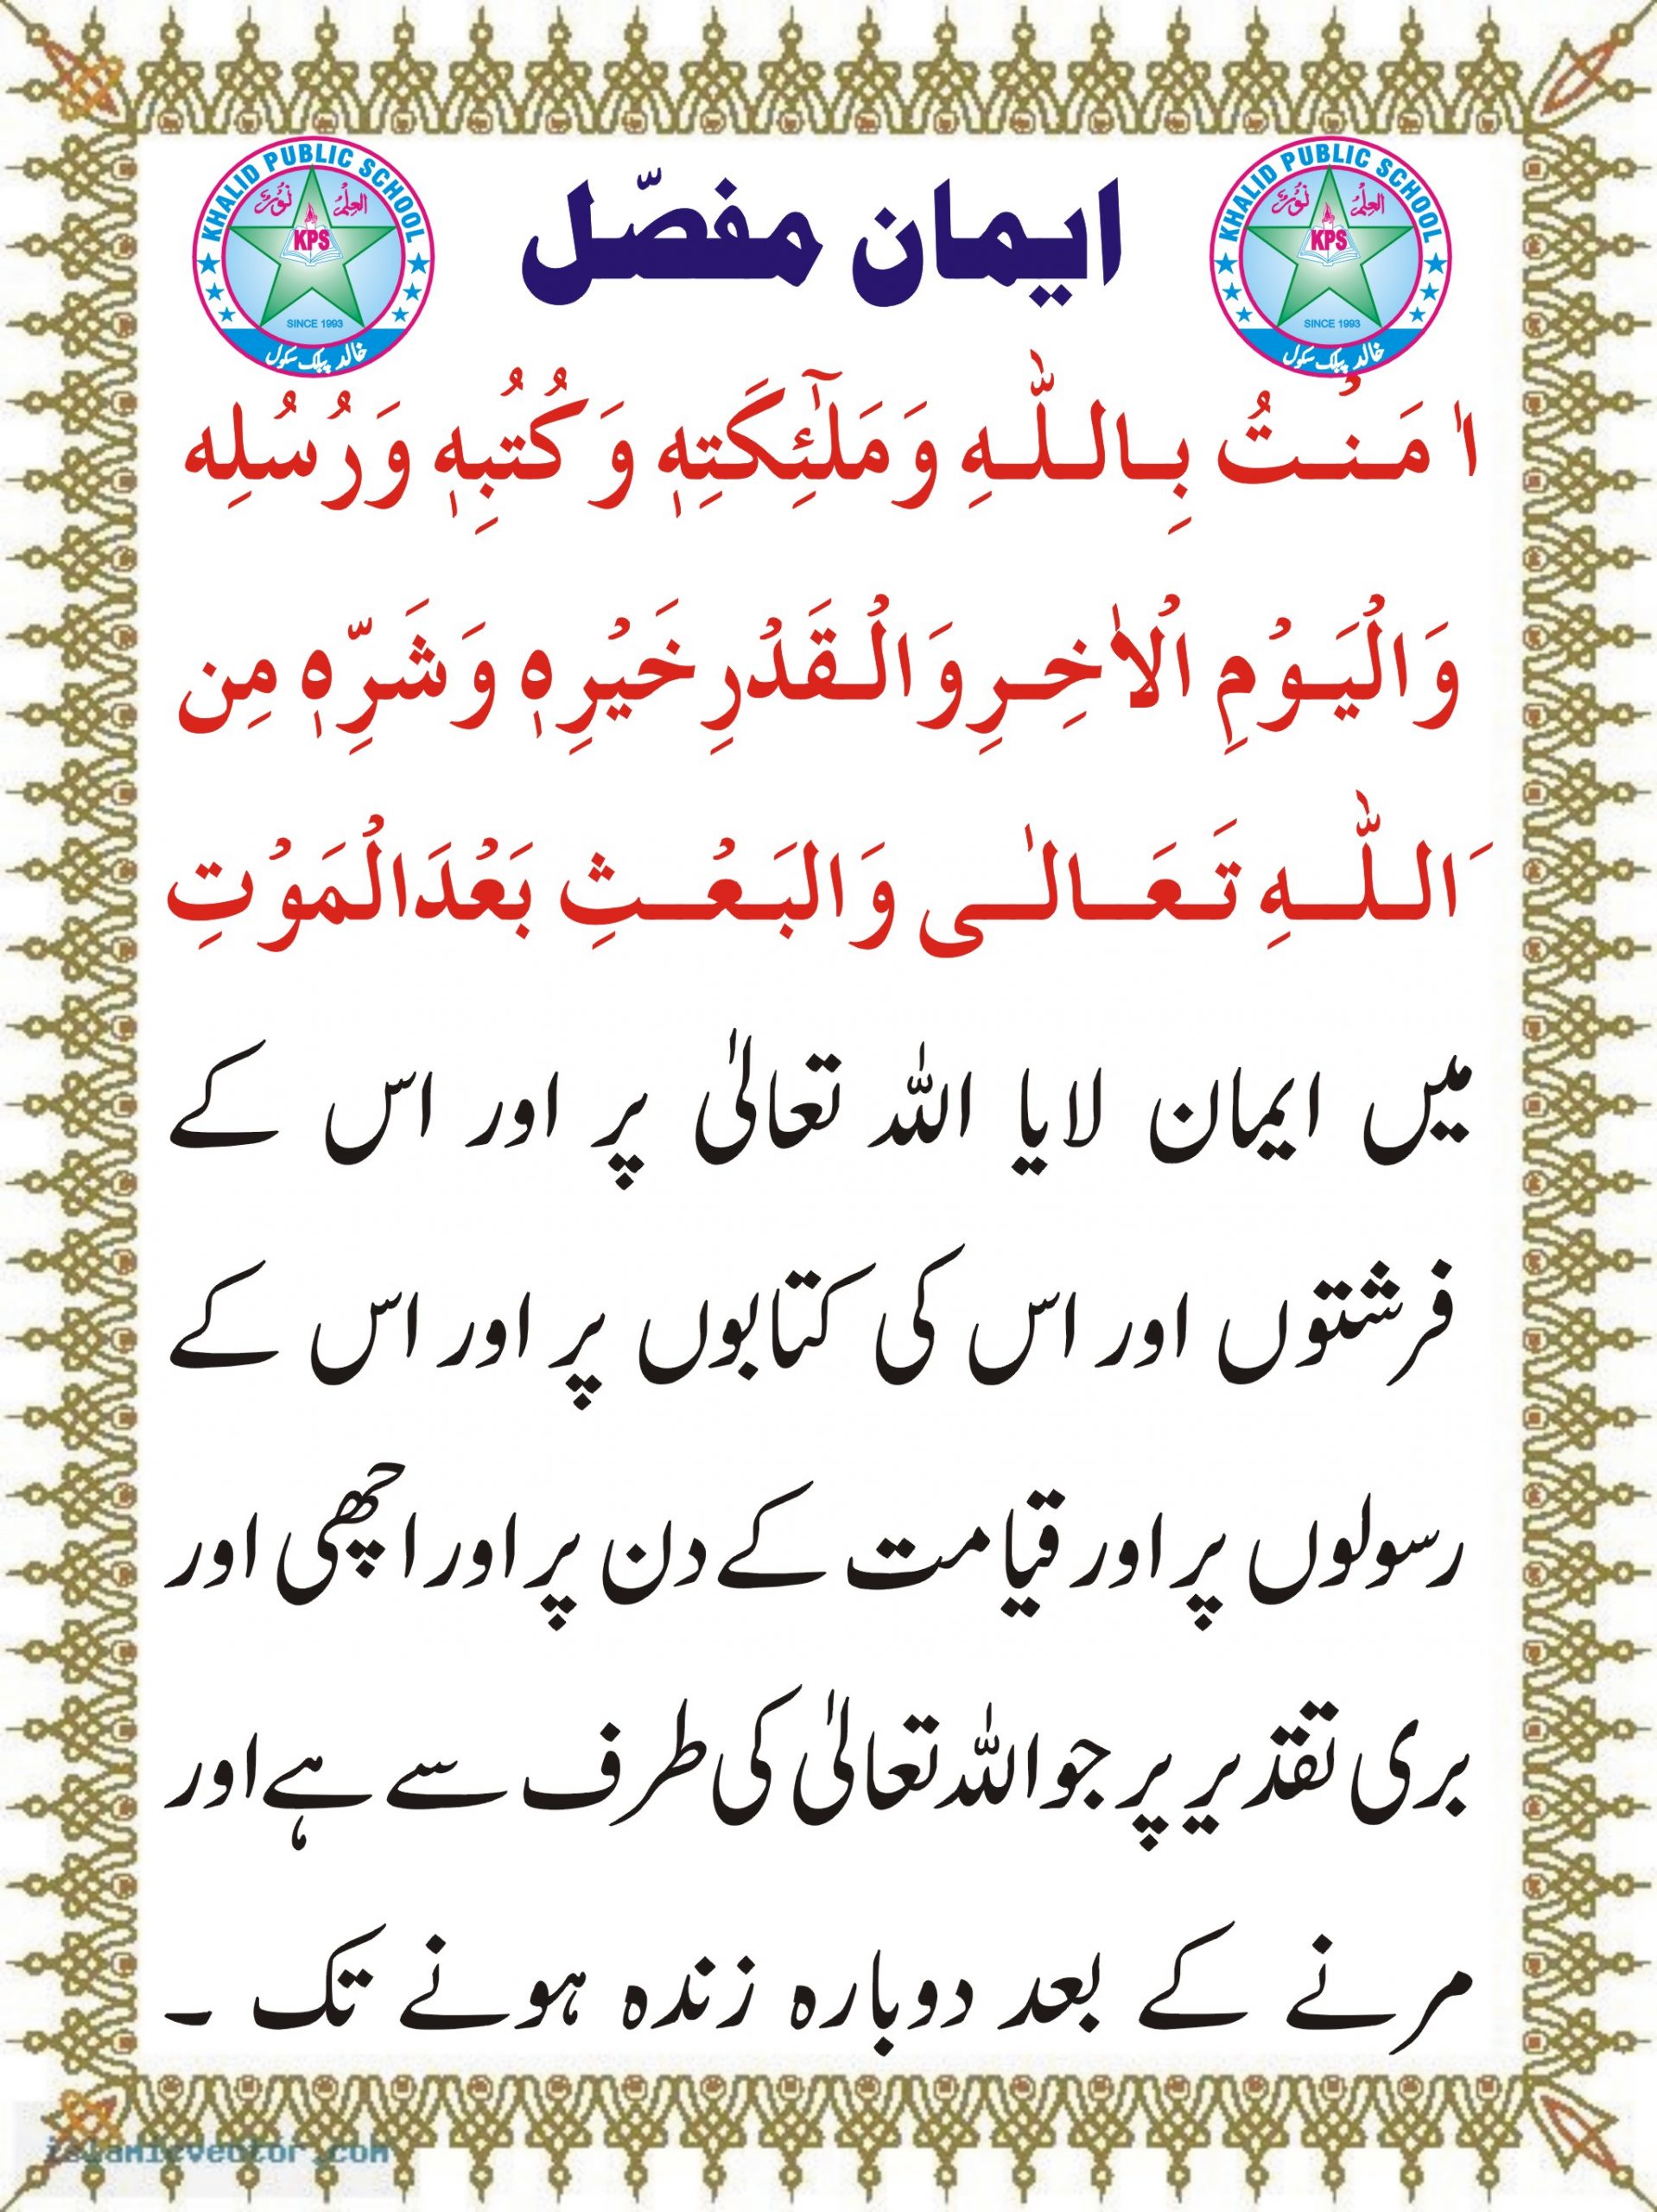 KHALID PUBLIC SCHOOL
العِلمُ نُورٌ
KPS
SINCE 1993
خالد پبلک سکول
ایمان مفصّل
KHALID PUBLIC SCHOOL
العِلمُ نُورٌ
KPS
SINCE 1993
خالد پبلک سکول
اٰ مَنْتُ بِاللّٰهِ وَ مَلٰٓئِكَتِهٖ وَ كُتُبِهٖ وَرُسُلِه
وَالْيَوْمِ الْاٰخِرِ وَالْقَدْرِ خَيْرِهٖ وَ شَرِّهٖ مِن
َاللّٰهِ تَعَالٰى وَالبَعْثِ بَعْدَالْمَوْتِ
میں ایمان لایا اللہ تعالیٰ پر اور اس کے
فرشتوں اور اس کی کتابوں پر اور اس کے
رسولوں پر اور قیامت کے دن پر اور اچھی اور
بری تقدیر پر جو اللہ تعالیٰ کی طرف سے ہے اور
مرنے کے بعد دوبارہ زندہ ہونے تک ۔
islamicvector.com